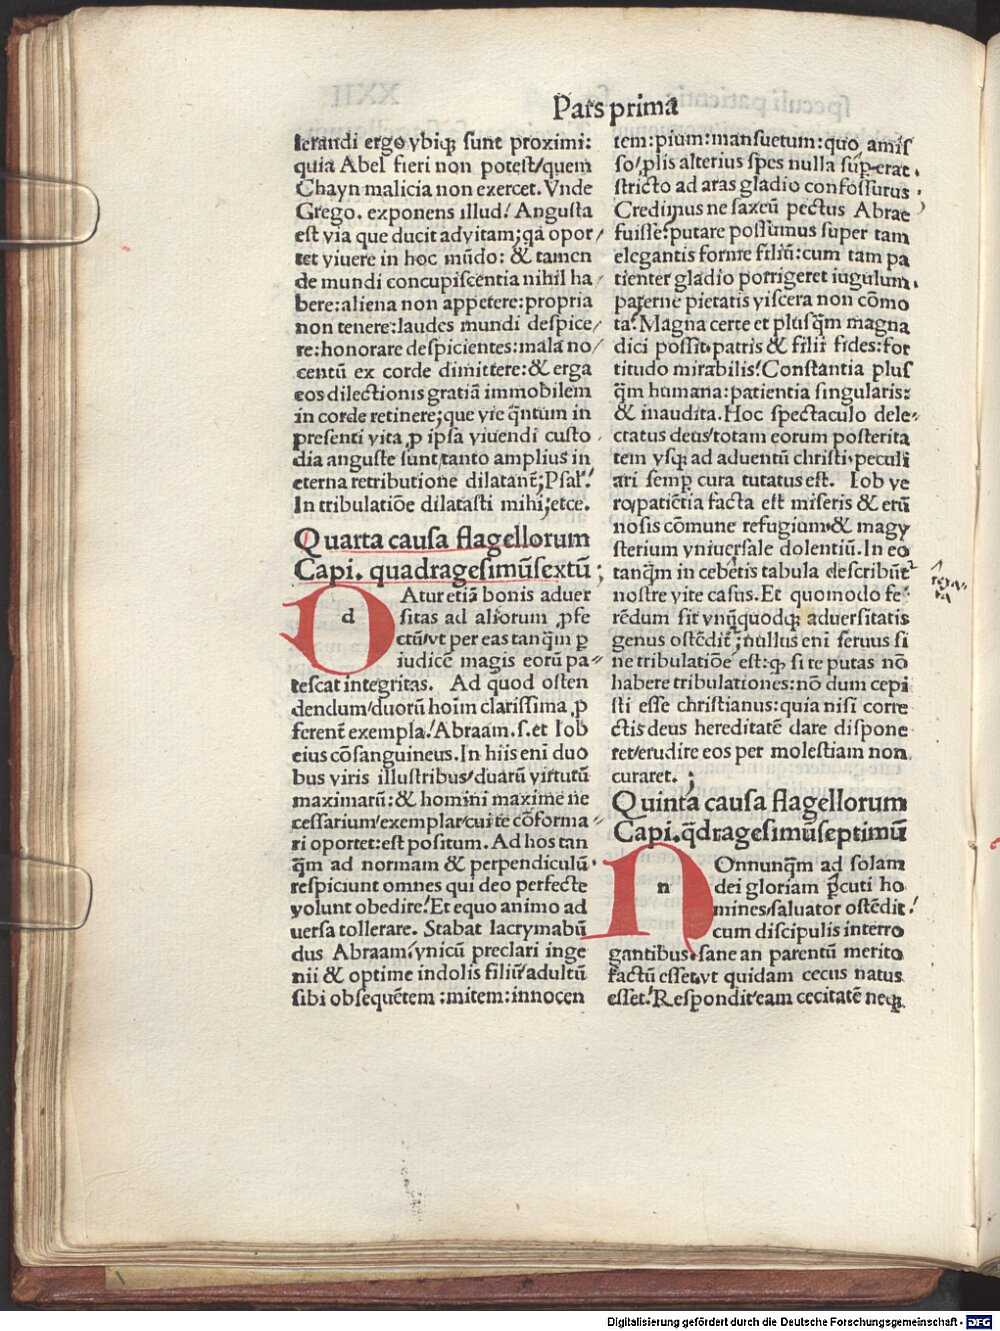 Pars prima
lerandi ergo vbiqꝫ sunt proximi:
quia Abel fieri non potest/quem
Chayn malicia non exercet. Vnde
Grego. exponens illud! Angusta
est via que ducit ad vitam; qa opor/
tet viuere in hoc mūdo: & tamen
de mundi concupiscentia nihil ha
bere: aliena non appetere: propria
non tenere: laudes mundi despice/
re: honorare despicientes: mala no/
centū ex corde dimittere: & erga
eos dilectionis gratiā immobilem
in corde retinere; que vie q̄ntum in
presenti vita ꝓ ipsa viuendi custo
dia anguste sunt/tanto amplius in
eterna retributione dilatanṯ; Psal!
In tribulatiōe dilatasti mihi; etce.
Quarta causa flagellorum
Capi. quadragesimūsextū;
d
Atur etiā bonis aduer
sitas ad aliorum ꝓfe
ctū/vt per eas tanq̄m ꝑ
iudicē magis eorū pa-
tescat integritas. Ad quod osten
dendum/duorū hoīm clarissima ꝓ
ferent exempla! Abraam.s. et Iob
eius cōsanguineus. In hiis eni duo
bus viris illustribus/duarū virtutū
maximarū: & homini maxime ne
cessarium/exemplar/cui te cōforma-
ri oportet: est positum. Ad hos tan
q̄m ad normam & perpendiculū.
respiciunt omnes qui deo perfecte
volunt obedire! Et equo animo ad
uersa tollerare. Stabat lacrymabū
dus Abraam! vnicū preclari inge
nii & optime indolis filiū/adultū
sibi obsequētem: mitem: innocen
tem: pium: mansuetum: quo amis
so/ꝓlis alterius spes nulla suꝑerat.
stricto ad aras gladio confossurus.
Credimus ne saxeū pectus Abrae
fuisse? putare possumus super tam
elegantis forme filiū: cum tam pa
tienter gladio porrigeret iugulum.
paterne pietatis viscera non cōmo
ta? Magna certe et plusq̄m magna
dici possit. patris & filii fides: for
titudo mirabilis! Constantia plus
q̄m humana: patientia singularis:
& inaudita. Hoc spectaculo dele-
ctatus deus/totam eorum posterita
tem vsqꝫ ad aduentū christi. peculi
ari semꝑ cura tutatus est. Iob ve
ro/patiētia facta est miseris & erū
nosis cōmune refugium. & magy
sterium vniuersale dolentiū. In eo
tanq̄m in cebetis tabula describūt
nostre vite casus. Et quomodo fe
rēdum sit vnūquodqꝫ aduersitatis
genus ostēdit; nullus eni seruus si
ne tribulatiōe est: qꝫ si te putas nō
habere tribulationes: nō dum cepi
sti esse christianus: quia nisi corre
ctis deus hereditatē dare dispone
ret/erudire eos per molestiam non
curaret.;
Quinta causa flagellorum
Capi. q̄dragesimūseptimū
n
Onnunq̄m ad solam
dei gloriam ꝑcuti ho
mines/saluator ostēdit!
cum discipulis interro
gantibus. sane an parentū merito
factū esset/vt quidam cecus natus
esset! Respondit/eam cecitatē neqꝫ